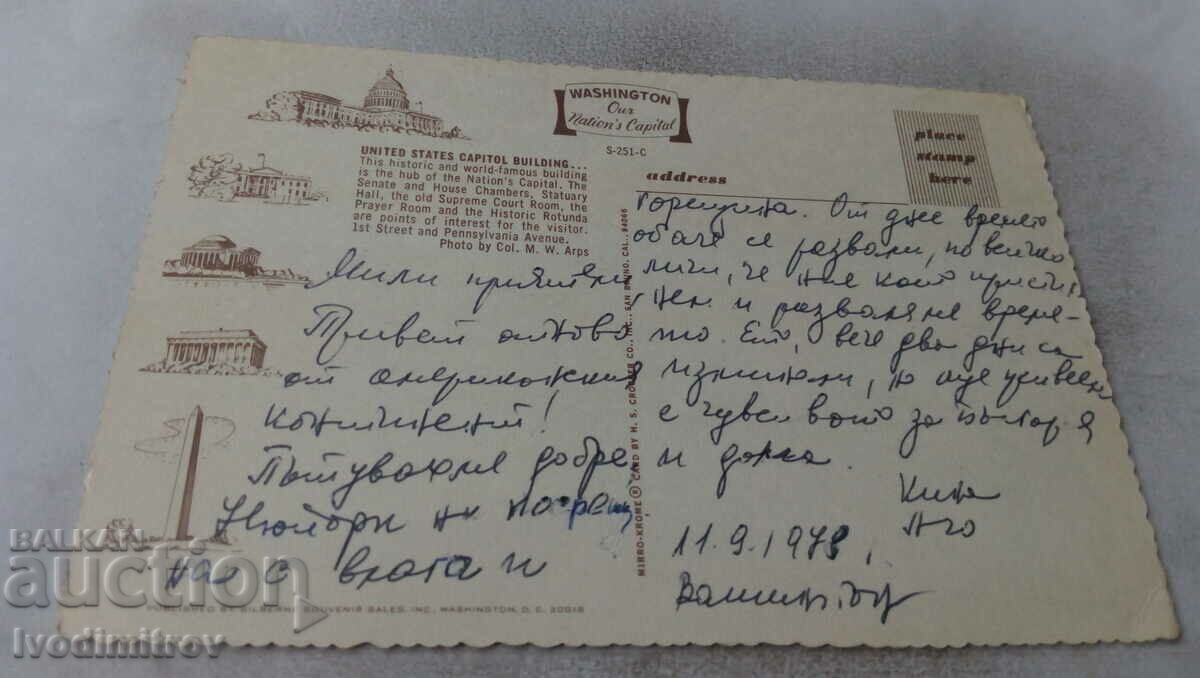 WASHINGTON
Our
Nation's Capital
S-251-C
place
stamp
here
address
UNITED STATES CAPITOL BUILDING...
This historic and world-famous building
is the hub of the Nation's Capital. The
Senate and House Chambers, Statuary
Hall, the old Supreme Court Room, the
Prayer Room and the Historic Rotunda
are points of interest for the visitor.
1st Street and Pennsylvania Avenue.
Photo by Col. M. W. Arps
Мили приятели,
Привет отново
от американския
континент!
Пътувахме добре,
Нюйорк ни посрещ
на с влага и
MIRRO-KROME ® CARD BY H. S. CROCKER CO., INC., SAN BRUNO, CAL., 94066
горещина. От днес времето
обаче се развали, но всичко
личи, че ние
и разваляме време-
то. Ето, вече два дни са
изминали, но още
е чувството за
и дома.
11.9.1978,
Вашингтон
PUBLISHED BY SILBERNE SOUVENIR SALES, INC., WASHINGTON, D. C. 20018
BALKAN
auction
Ivodimitrov